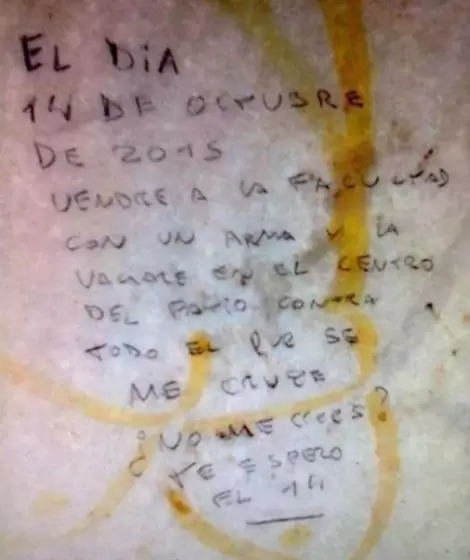 EL DIA
14 DE OCTUBRE
DE 2015
VENDRE A LA FACULTAD
CON UN ARMA Y LA
VACIARE EN EL CENTRO
DEL PATIO CONTRA
TODO EL QUE SE
ME CRUZE
¿NO ME CREES?
TE ESPERO
EL 14